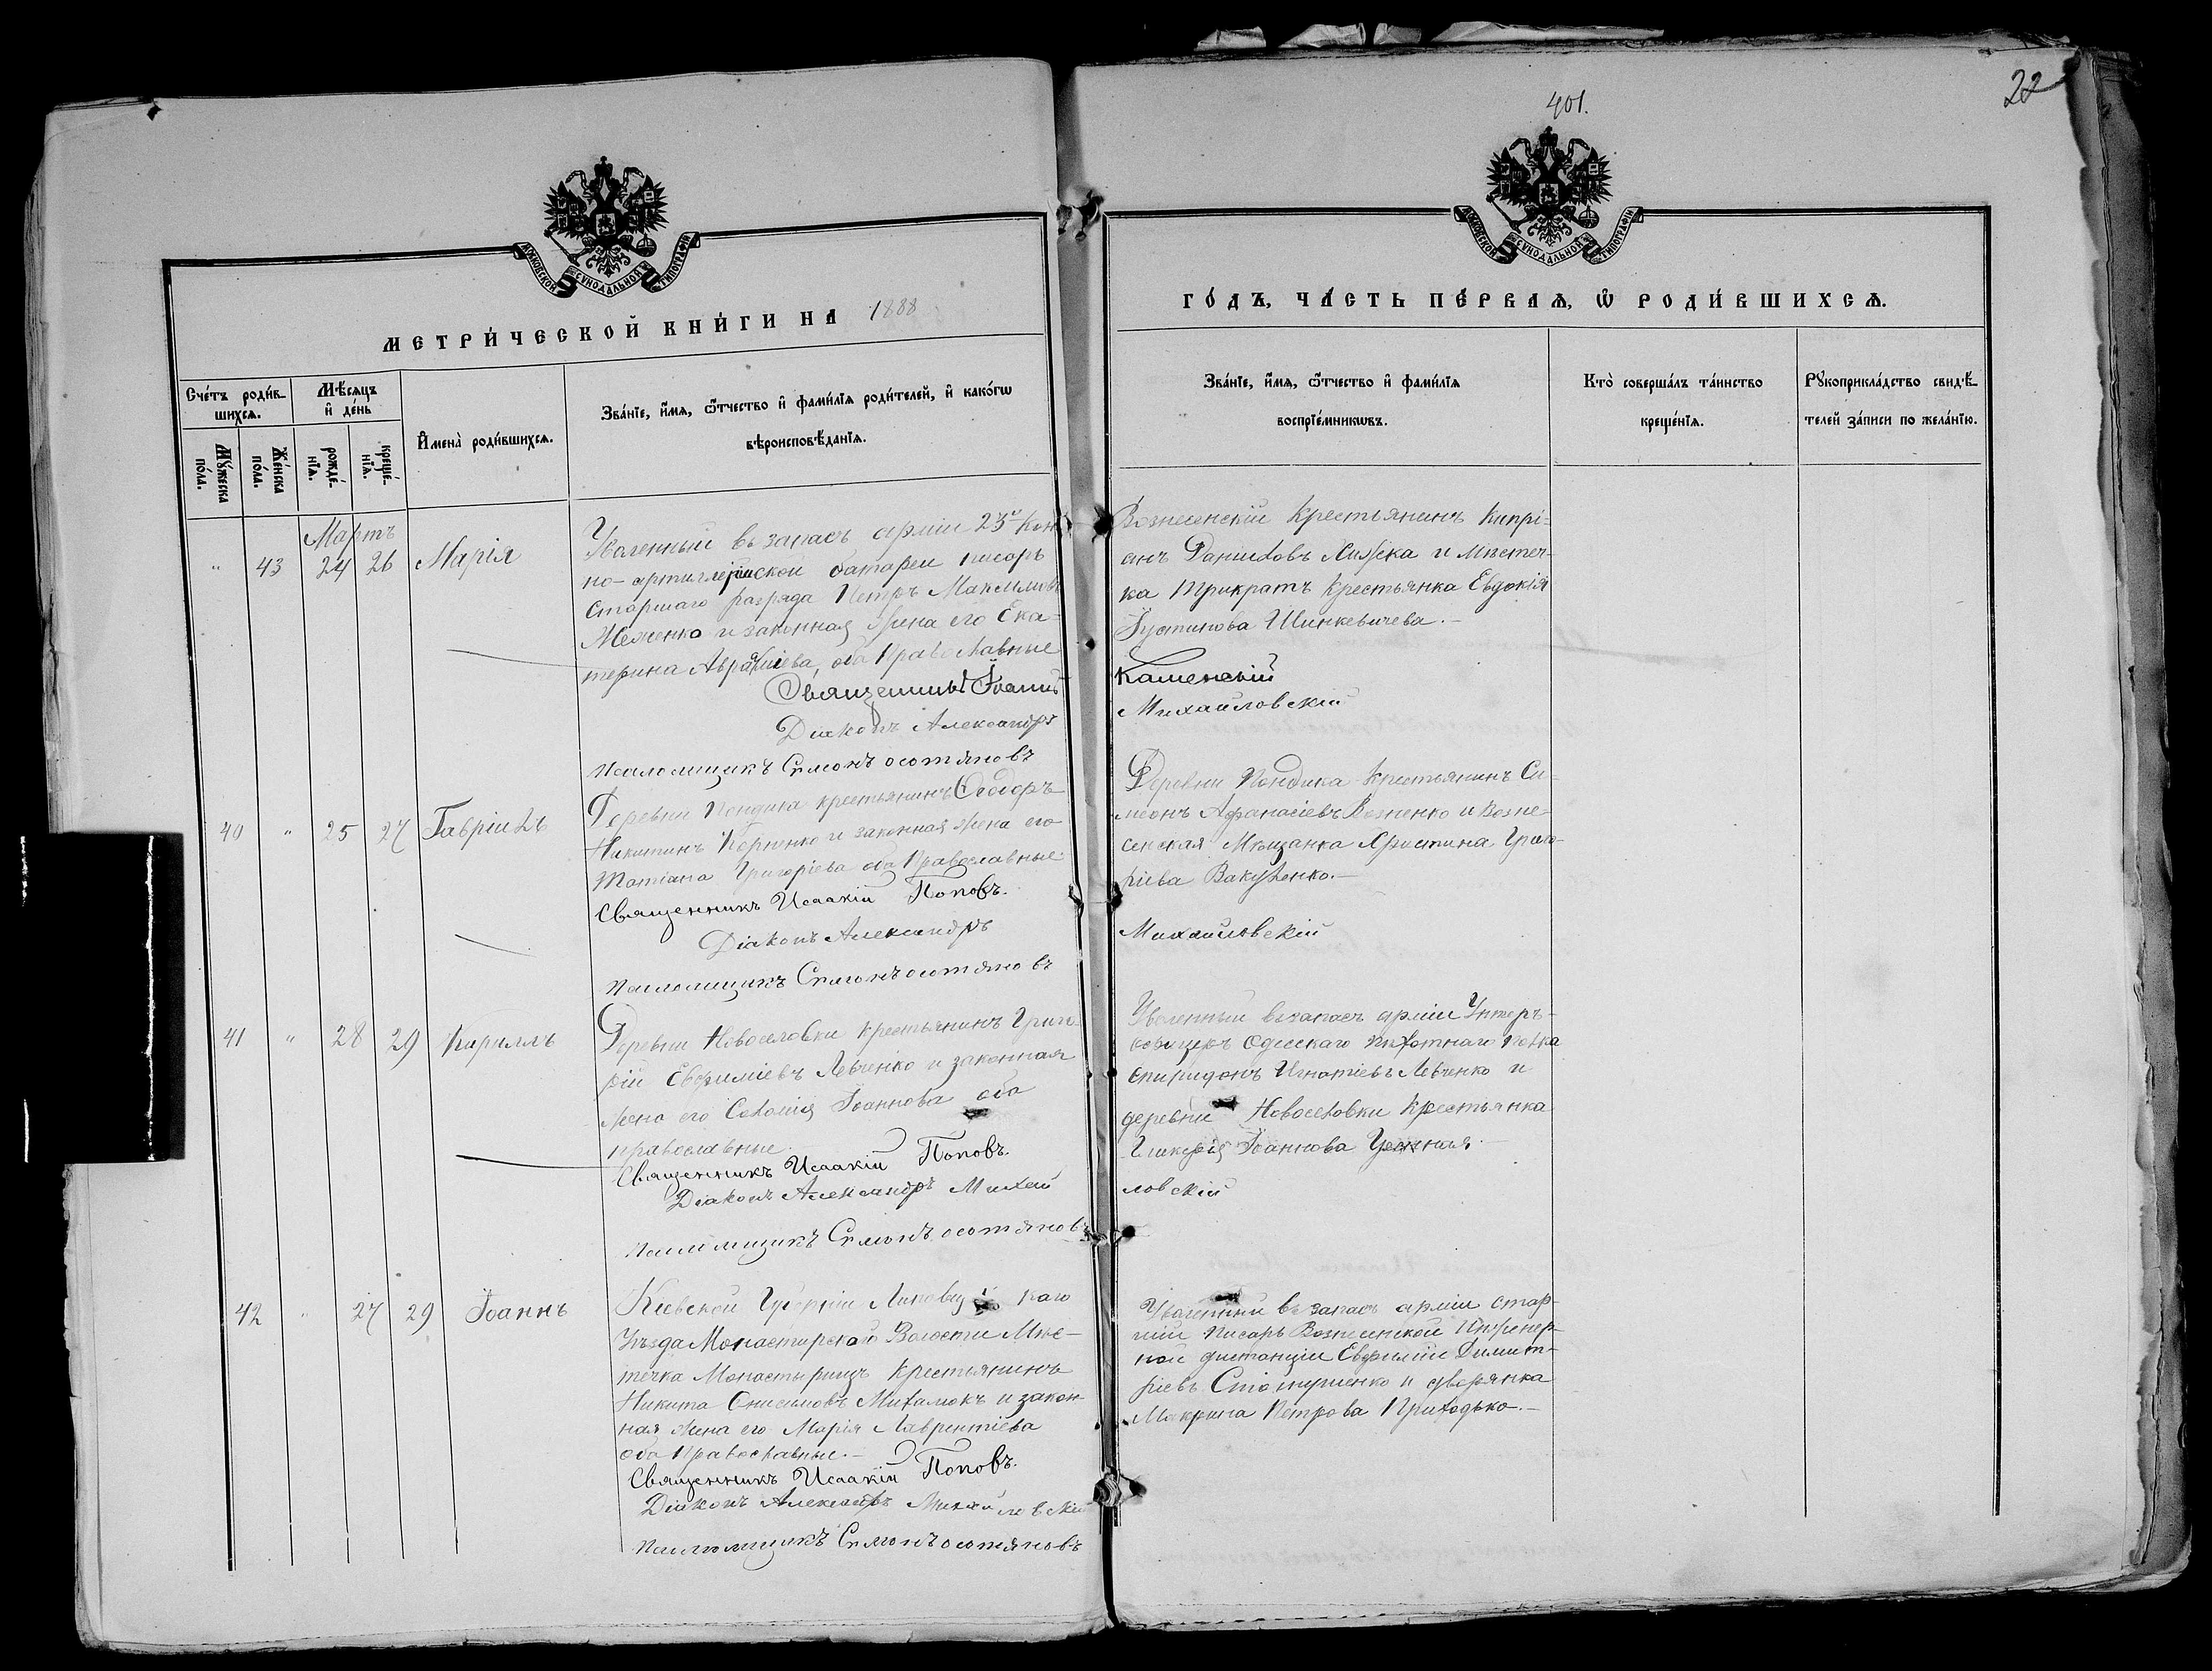 22
401.
МОСКОВСКОЙ СѴНОДАЛЬНОЙ ТИПОГРАФІИ
МОСКОВСКОЙ СѴНОДАЛЬНОЙ ТИПОГРАФІИ
МЕТРИ́ЧЕСКОЙ КНИ́ГИ НА 1888
ГО́ДЪ, ЧА́СТЬ ПЕ́РВАѦ, Ѡ҆ РОДИ́ВШИХСѦ.
Сче́тъ роди́в-
шихсѧ.
Мѣ́сѧцъ
и҆ де́нь
Мꙋ́жеска
по́ла.
Же́нска
по́ла.
рожде́-
нїѧ.
креще́-
нїѧ.
И҆мена̀ роди́вшихсѧ.
Зва́нїе, и҆́мѧ, ѻ҆́тчество и҆ фами́лїѧ роди́телей, и҆ како́гѡ
вѣроисповѣ́данїѧ.
Зва́нїе, и҆́мѧ, ѻ҆́тчество и҆ фами́лїѧ
воспрїе́мникѡвъ.
Кто̀ соверша́лъ та́инство
креще́нїѧ.
Рꙋкоприкла́дство свидѣ́-
телей за́писи по жела́нїю.
Мартъ
" 43 24 26 Марія
Уволенный въ запасъ арміи 23й кон-
но-артиллерійской батареи писарь
старшаго разряда Петръ Максимовъ
и законная жена его Ека-
терина оба Православные
Священникъ Іоаннъ
Діаконъ Александръ
Псаломщикъ Симонъ
Вознесенскій крестьянинъ Кипрі-
анъ Даниловъ и Мѣстеч-
ка Трикратъ крестьянка Евдокія
Іустинова Шинкевичева.-
Каменскій
Михайловскій
40 " 25 27 Гавріилъ
Деревни крестьянинъ Ѳеодоръ
Никитинъ и законная жена его
Татіана Григоріева оба Православные
Священникъ Исаакій Поповъ.
Діаконъ Александръ
Псаломщикъ Симонъ
Деревни крестьянинъ Си-
меонъ Аѳанасіевъ и Возне-
сенская Мѣщанка Христина Григо-
ріева Вакуленко.-
Михайловскій
41 " 28 29 Кириллъ
Деревни Новоселовки крестьянинъ Григо-
рій Евѳиміевъ Левченко и законная
жена его Соломія Іоаннова оба
православные
Священникъ Исаакій Поповъ.
Діаконъ Александръ Михай
Псаломщикъ Симонъ
Уволенный въ запасъ арміи Унтеръ-
офицеръ Одесскаго пѣхотнаго полка
Спиридонъ Игнатіевъ Левченко и
деревни Новоселовки крестьянка
Гликерія Іоаннова
ловскій
42 " 27 29 Іоаннъ
Кіевской Губерніи каго
Уѣзда Монастырской Волости Мѣс-
течка Монастырищъ Крестьянинъ
Никита Онисимовъ и закон-
ная жена его Марія Лаврентіева
оба Православные.-
Священникъ Исаакій Поповъ.
Діаконъ Александръ Михайловскій
Псаломщикъ Симонъ
Уволенный въ запасъ арміи стар-
шій писарь Вознесенской Инженер-
ной дистанціи Евѳимій Димит-
ріевъ и дворянка
Макрина Петрова Приходько.-